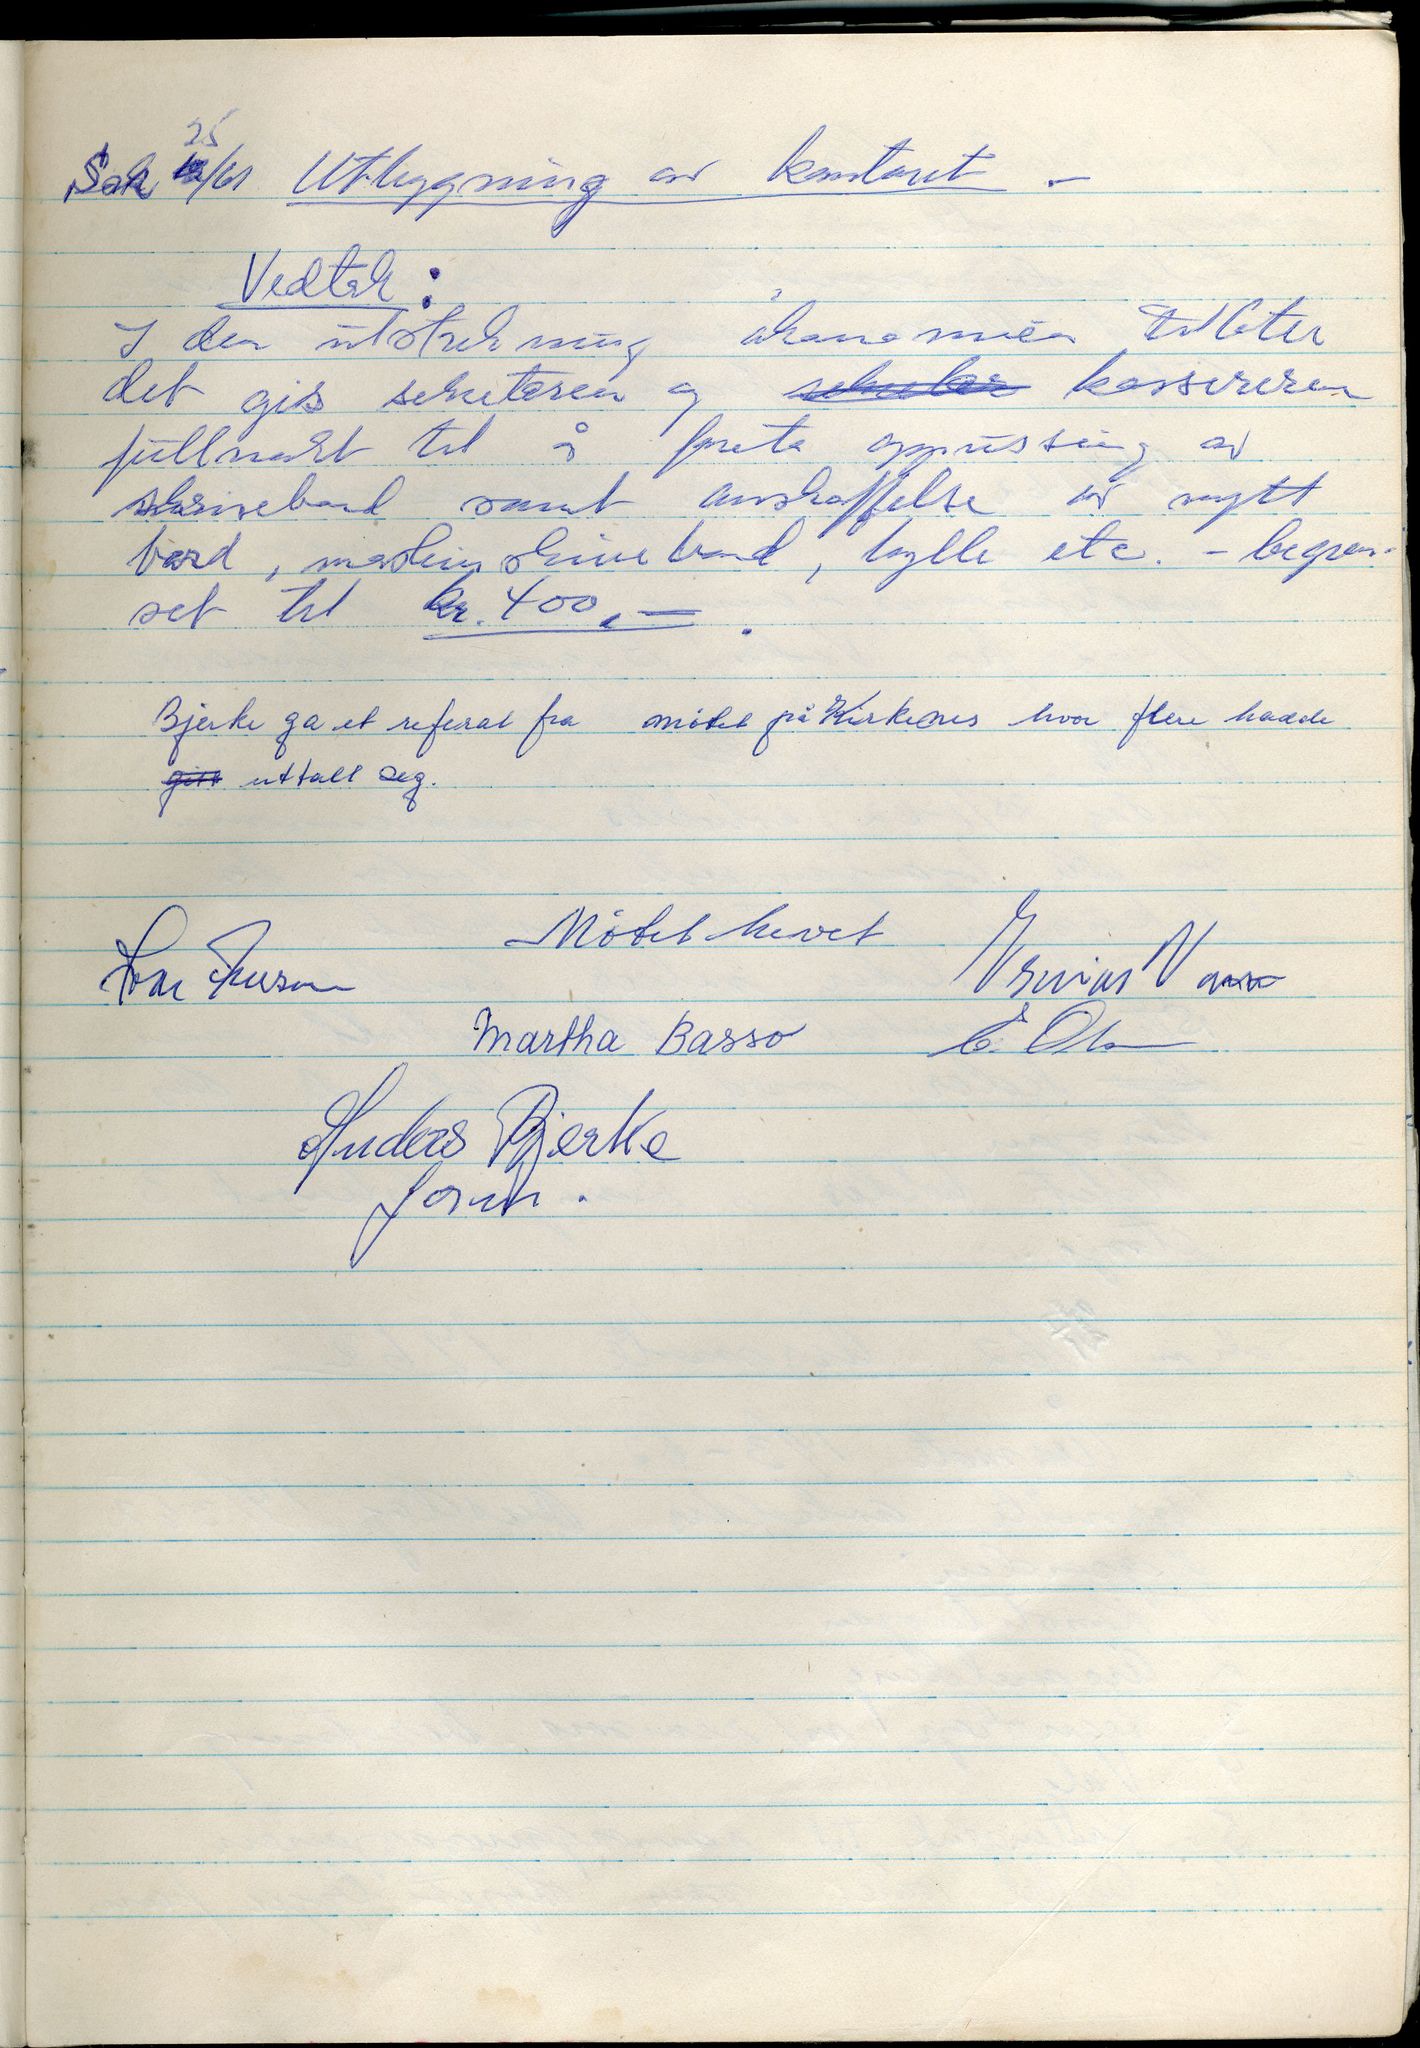 Sak 25/61 Utbygning av kontoret -
Vedtak:
I den utstrekning ökonomien tillater
det gis sekretæren og kassereren
fullmakt til å foreta oppussing av
skrivebord samt anskaffelse av nytt
bord, maskinskrivebord, hylle etc. - begren-
set til kr. 400,-.
Bjerke ga et referat fra møtet på Kirkenes hvor flere hadde
gitt uttalt seg.
Møtet hevet
Martha Basso E. Olsen
Anders Bjerke
form.